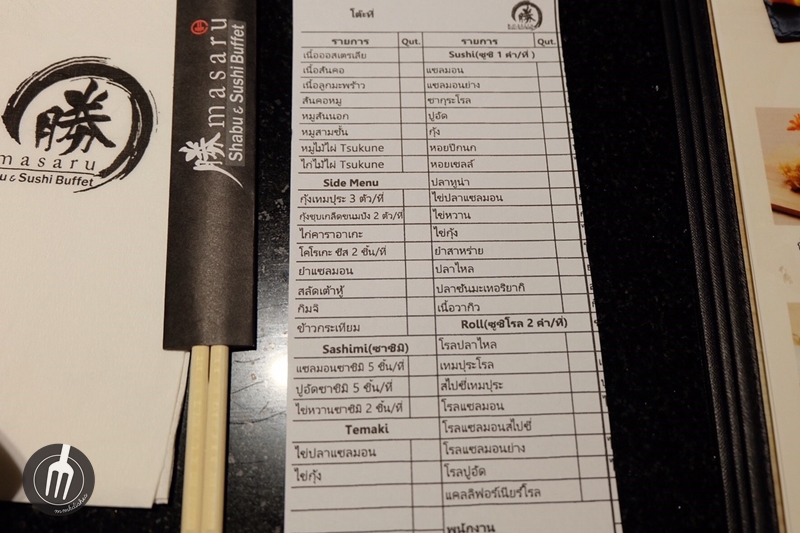 勝
masaru
Sushi Buffet
勝 masaru
Shabu & Sushi Buffet
โต๊ะที่
勝
รายการ Qut. รายการ Qut.
เนื้อออสเตรเลีย Sushi(ซูชิ 1 คำ/ที่ )
เนื้อสันคอ แซลมอน
เนื้อลูกมะพร้าว แซลมอนย่าง
สันคอหมู ซากุระโรล
หมูสันนอก ปูอัด
หมูสามชั้น กุ้ง
หมูไม้ไผ่ Tsukune หอยปีกนก
ไก่ไม้ไผ่ Tsukune หอยเชลล์
Side Menu ปลาทูน่า
กุ้งเทมปุระ 3 ตัว/ที่ ไข่ปลาแซลมอน
กุ้งชุบเกล็ดขนมปัง 2 ตัว/ที่ ไข่หวาน
ไก่คาราอาเกะ ไข่กุ้ง
โคโรเกะ ชีส 2 ชิ้น/ที่ ยำสาหร่าย
ยำแซลมอน ปลาไหล
สลัดเต้าหู้ ปลาซันมะเทอริยากิ
กิมจิ เนื้อวากิว
ข้าวกระเทียม Roll(ซูชิโรล 2 คำ/ที่)
Sashimi(ซาชิมิ) โรลปลาไหล
แซลมอนซาชิมิ 5 ชิ้น/ที่ เทมปุระโรล
ปูอัดซาชิมิ 5 ชิ้น/ที่ สไปซี่เทมปุระ
ไข่หวานซาชิมิ 2 ชิ้น/ที่ โรลแซลมอน
Temaki โรลแซลมอนสไปซี่
ไข่ปลาแซลมอน โรลแซลมอนย่าง
ไข่กุ้ง โรลปูอัด
แคลลิฟอร์เนียร์โรล
พนักงาน